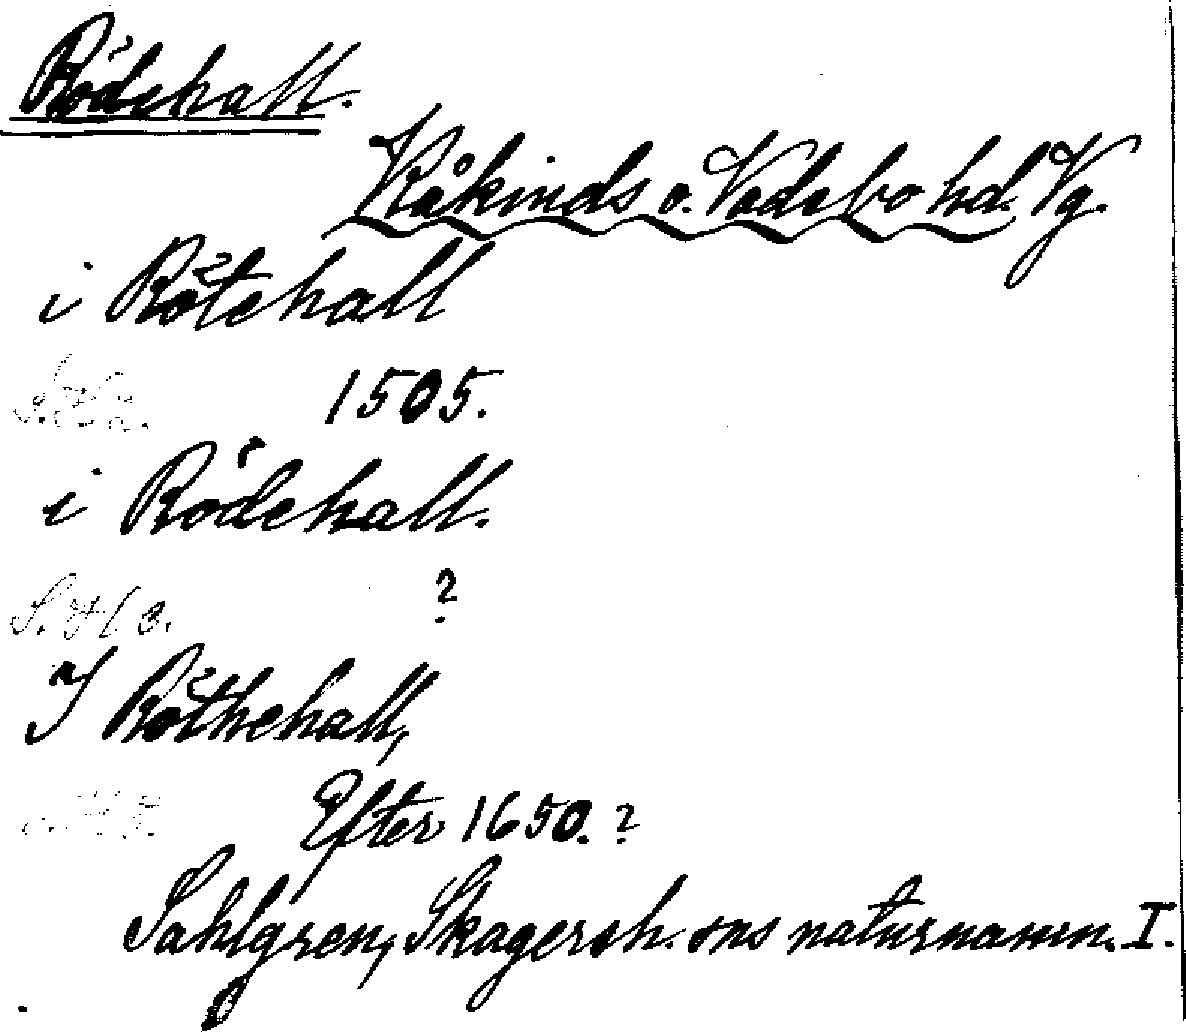 Rödehall.
Kåkinds o. Vadsbo hd. Vg.
i Rötehall
1505.
i Rödehall.
S. 713. ?
I Röthehall,
Efter 1650. ?
Sahlgren, Skagersh. sns naturnamn. I.